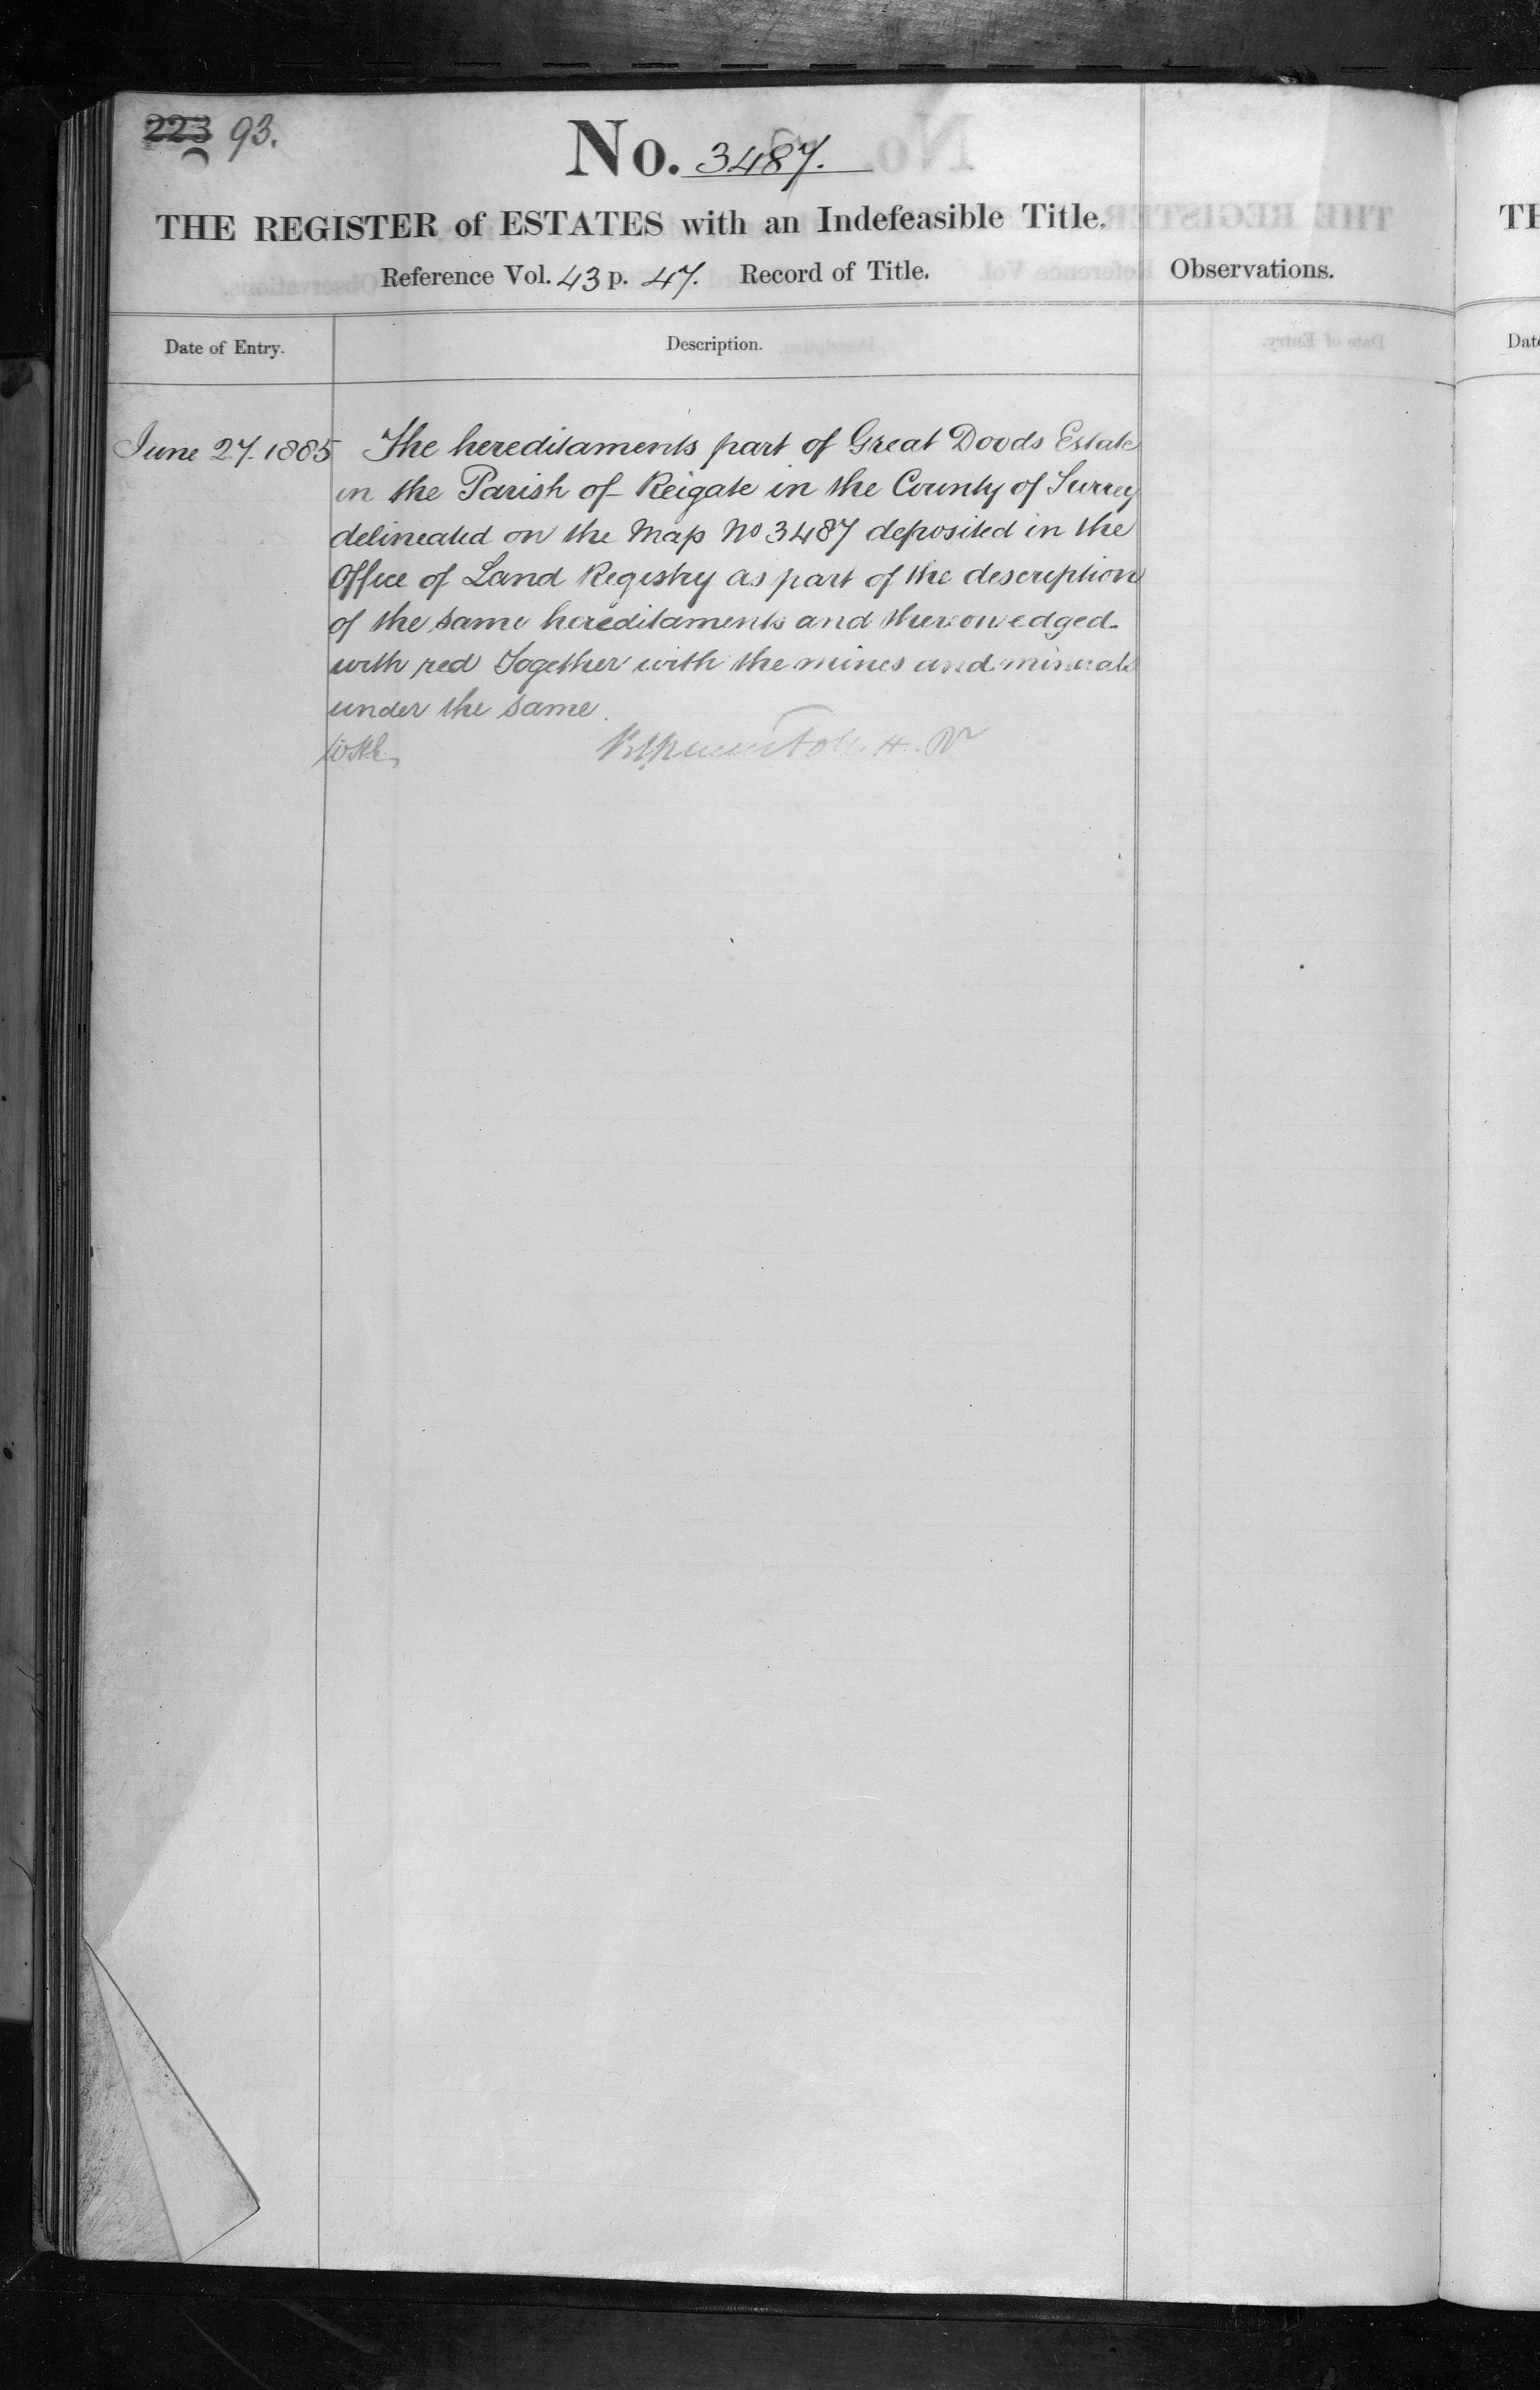 223 93.
No. 3487.
THE REGISTER of ESTATES with an Indefeasible Title.
Reference Vol. 43 p. 47. Record of Title.
Observations.
Date of Entry.
Description.
June 27. 1885
The hereditaments part of Great Doods Estate
in the Parish of Reigate in the County of Surrey
delineated on the Map No 3487 deposited in the
Office of Land Registry as part of the description
of the same hereditaments and thereon edged
with red Together with the mines and minerals
under the same.
TH
Date